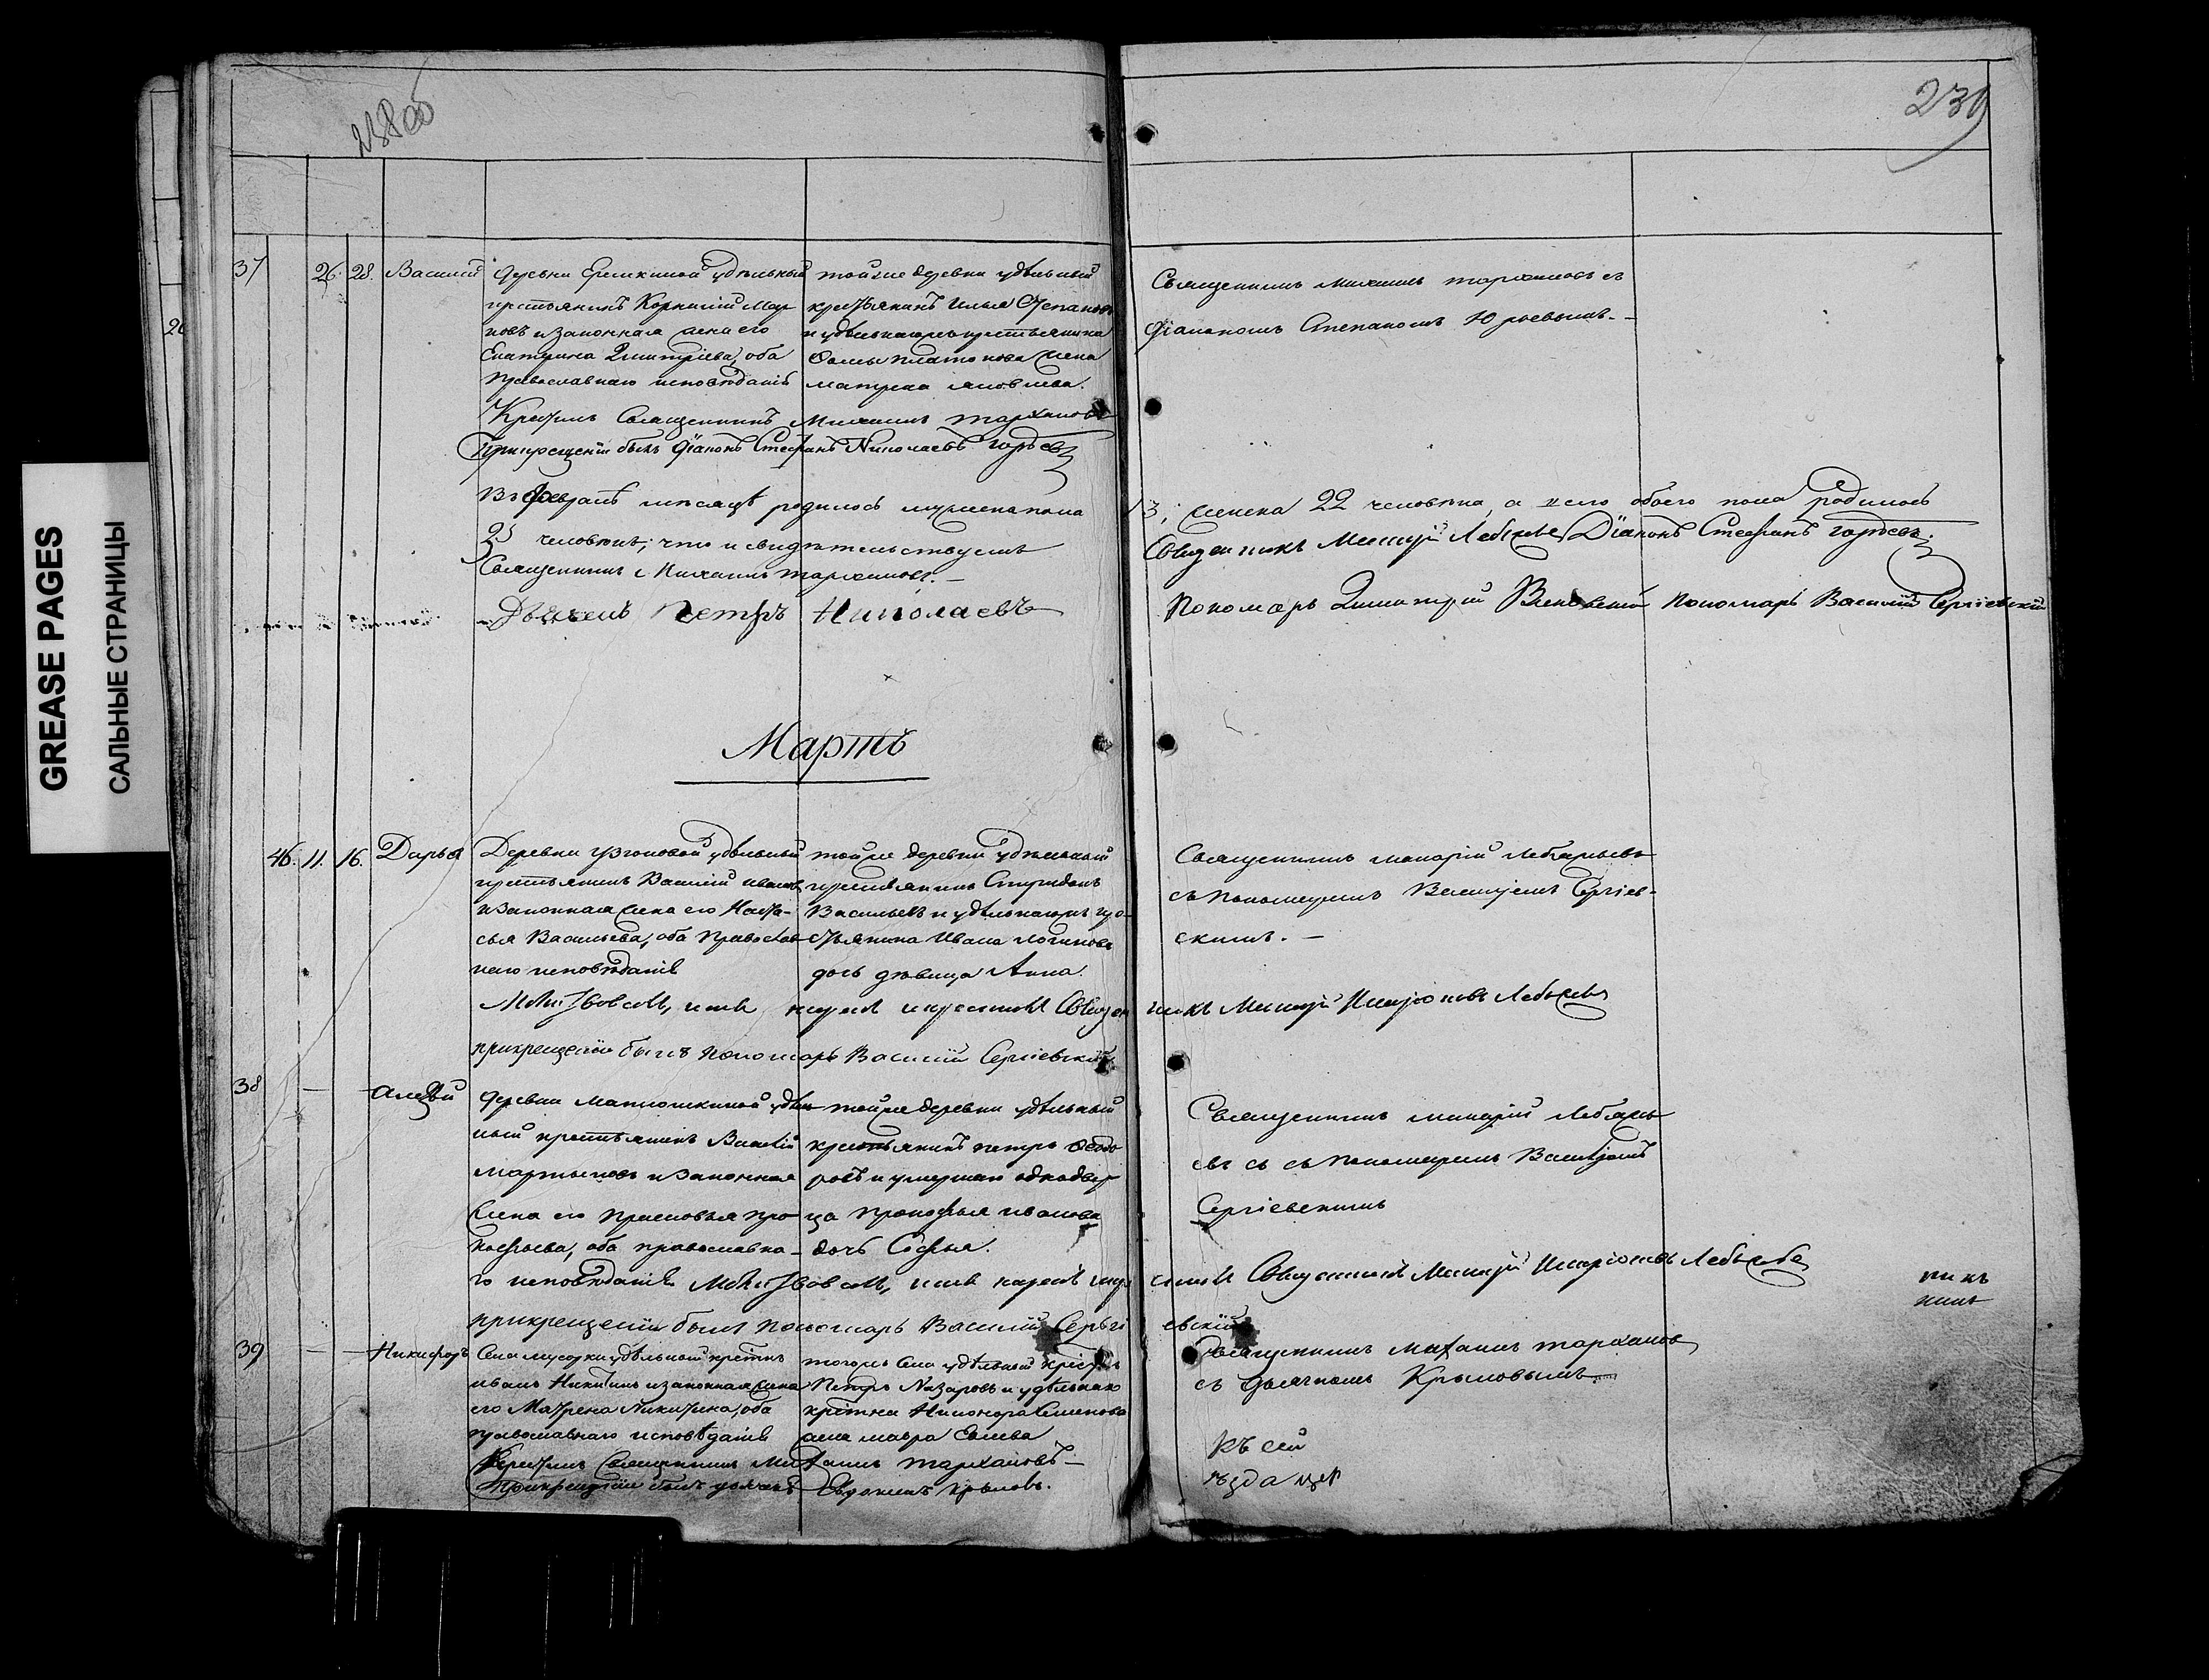 238об
239
GREASE PAGES
САЛЬНЫЕ СТРАНИЦЫ
26
37 26. 28. Василий
деревни удѣльный
крестьянинъ Корнилий Мар
ковъ и законная жена его
Екатерина Димитріева, оба
православнаго исповѣданія
тойже деревни удѣльный
крестьянинъ Илья Степановъ
и удѣльнаго крестьянина
Фомы Платонова жена
Матрена Яковлева.
Священникъ Михаилъ Тархановъ съ
діакономъ Степаномъ
Крестилъ Священникъ Михаилъ Тархановъ
При крещеніи былъ Діаконъ Стефанъ Николаевъ Гордѣевъ
Въ Февралѣ мѣсяцѣ родилось мужеска пола
женска 22 человѣка, а всего обоего пола родилось
человѣкъ; что и свидѣтельствуемъ
Священникъ Михаилъ Тархановъ.
Діаконъ Стефанъ Гордѣевъ.
Дьячекъ Петръ Николаевъ
Пономарь Димитрій Пономарь Василій Сергіевскій
Мартъ
46. 11. 16. Дарья
Деревни удѣльный
крестьянинъ Василій Ивановъ
и законная жена его Наста-
сья Васильева, оба православ
наго исповѣданія
тойже деревни удѣльный
крестьянинъ Спиридонъ
Васильевъ и удѣльнаго кре-
стьянина Ивана Логинова
дочь дѣвица Анна.
Священникъ Макарій Лебедевъ
съ пономаремъ Василіемъ Сергіев-
скимъ.
Молитвовалъ, имя нарекъ и крестилъ Священникъ Макарій Иларіоновъ Лебедевъ
при крещеніи былъ Пономарь Василій Сергіевскій
38 — Алексѣй
деревни Матюшкиной удѣль
ный крестьянинъ Василій
Мартыновъ и законная
жена его Прасковья Про
кофьева, оба православна-
го исповѣданія
тойже деревни удѣльный
крестьянинъ Петръ Федо
ровъ и умершаго однодвор
ца Прокофья Иванова
дочь Софья.
Священникъ Макарій Лебедевъ
съ пономаремъ Василіемъ
Сергіевскимъ
Молитвовалъ, имя нарекъ и крестилъ Священникъ Макарій Иларіоновъ Лебедевъ
при крещеніи былъ Пономарь Василій Сергіевскій
39 — — Никифоръ
Села Мусорки удѣльный крестнъ
Иванъ Никитинъ и законная жена
его Матрена Никитина, оба
православнаго исповѣданія
тогожъ села удѣльный
Петръ Назаровъ и удѣльнаго
Никонора Семенова
жена Мавра
Священникъ Михаилъ Тархановъ
съ дьячкомъ Крыловымъ.
Крестилъ Священникъ Михаилъ Тархановъ
При крещеніи былъ дьячекъ Евдокимъ Крыловъ.
къ сей
ѣзда
никъ